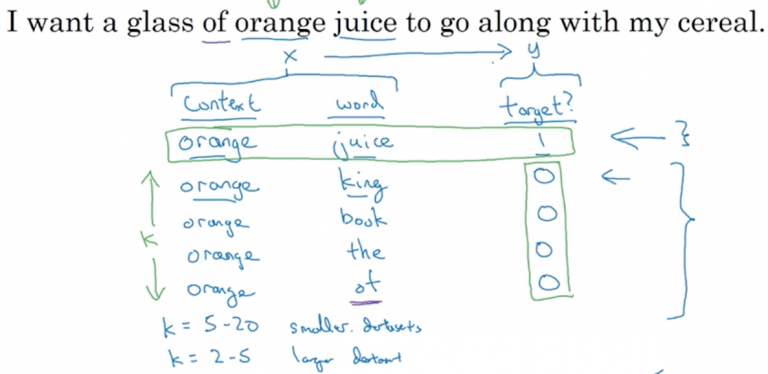 I want a glass of orange juice to go along with my cereal.
x y
Context word target?
orange juice 1
orange king 0
orange book 0
k
orange the 0
orange of 0
k = 5-20 smaller datasets
k = 2-5 larger dataset